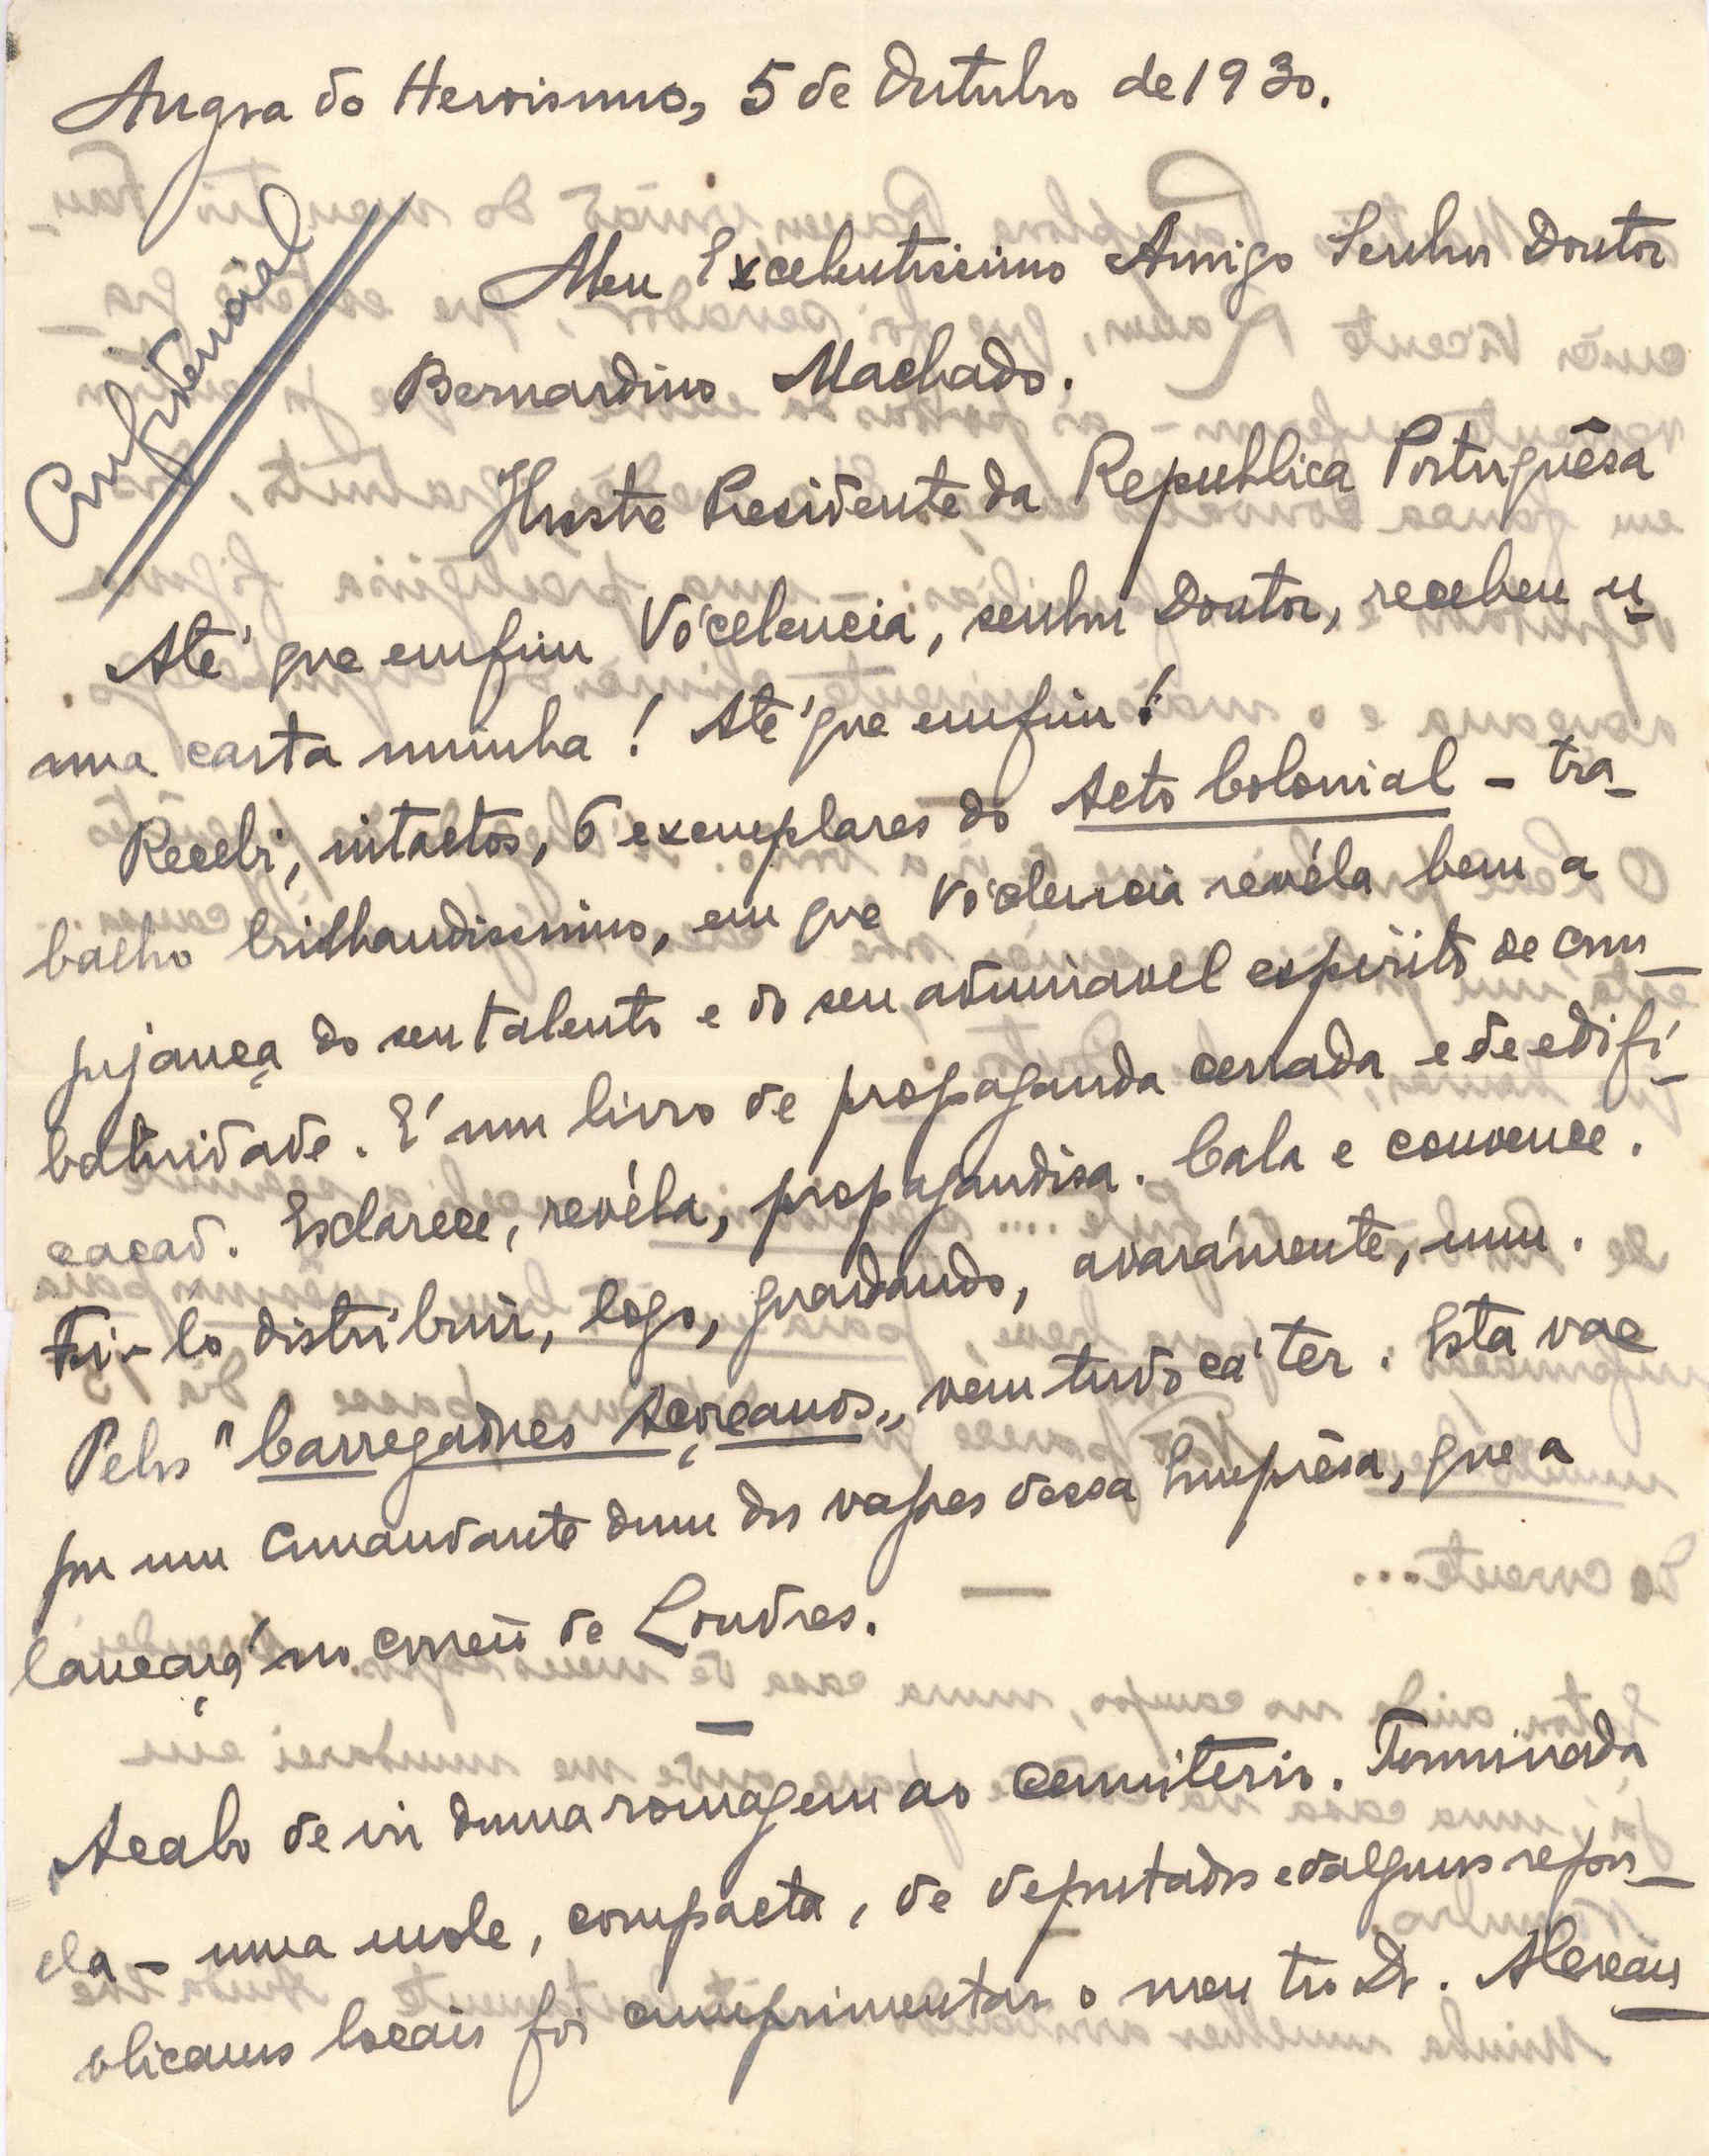 Angra do Heroismo, 5 de Outubro de 1930.
Confidencial
Meu Excelentissimo Amigo Senhor Doutor
Bernardino Machado.
Ilustre Presidente da Republica Portuguêsa
Até que emfim Vo'celencia, senhor Doutor, recebeu u-
ma carta minha! Até que emfim!
Recebi, intactos, 6 exemplares do Acto Colonial - tra-
balho brilhandissimo, em que Vo'celencia revéla bem a
pujança do seu talento e do seu admiravel espirito de com-
batividade. E' um livro de propaganda cerrada e de edifi-
cação. Esclarece, revéla, propagandisa. Cala e convence.
Fi-lo distribuir, logo, guardando, avaramente, um.
Pelos "Carregadores Açoreanos" vem tudo cá ter. Esta vae
por um comandante dum dos vapores dessa Emprêsa, que a
lançará no correio de Londres.
—
Acabo de vir duma romagem ao cemiterio. Terminada
ela - uma mole, compacta, de deputados e dalguns repu-
blicanos locais foi cumprimentar o meu tio Dr. Alexan-